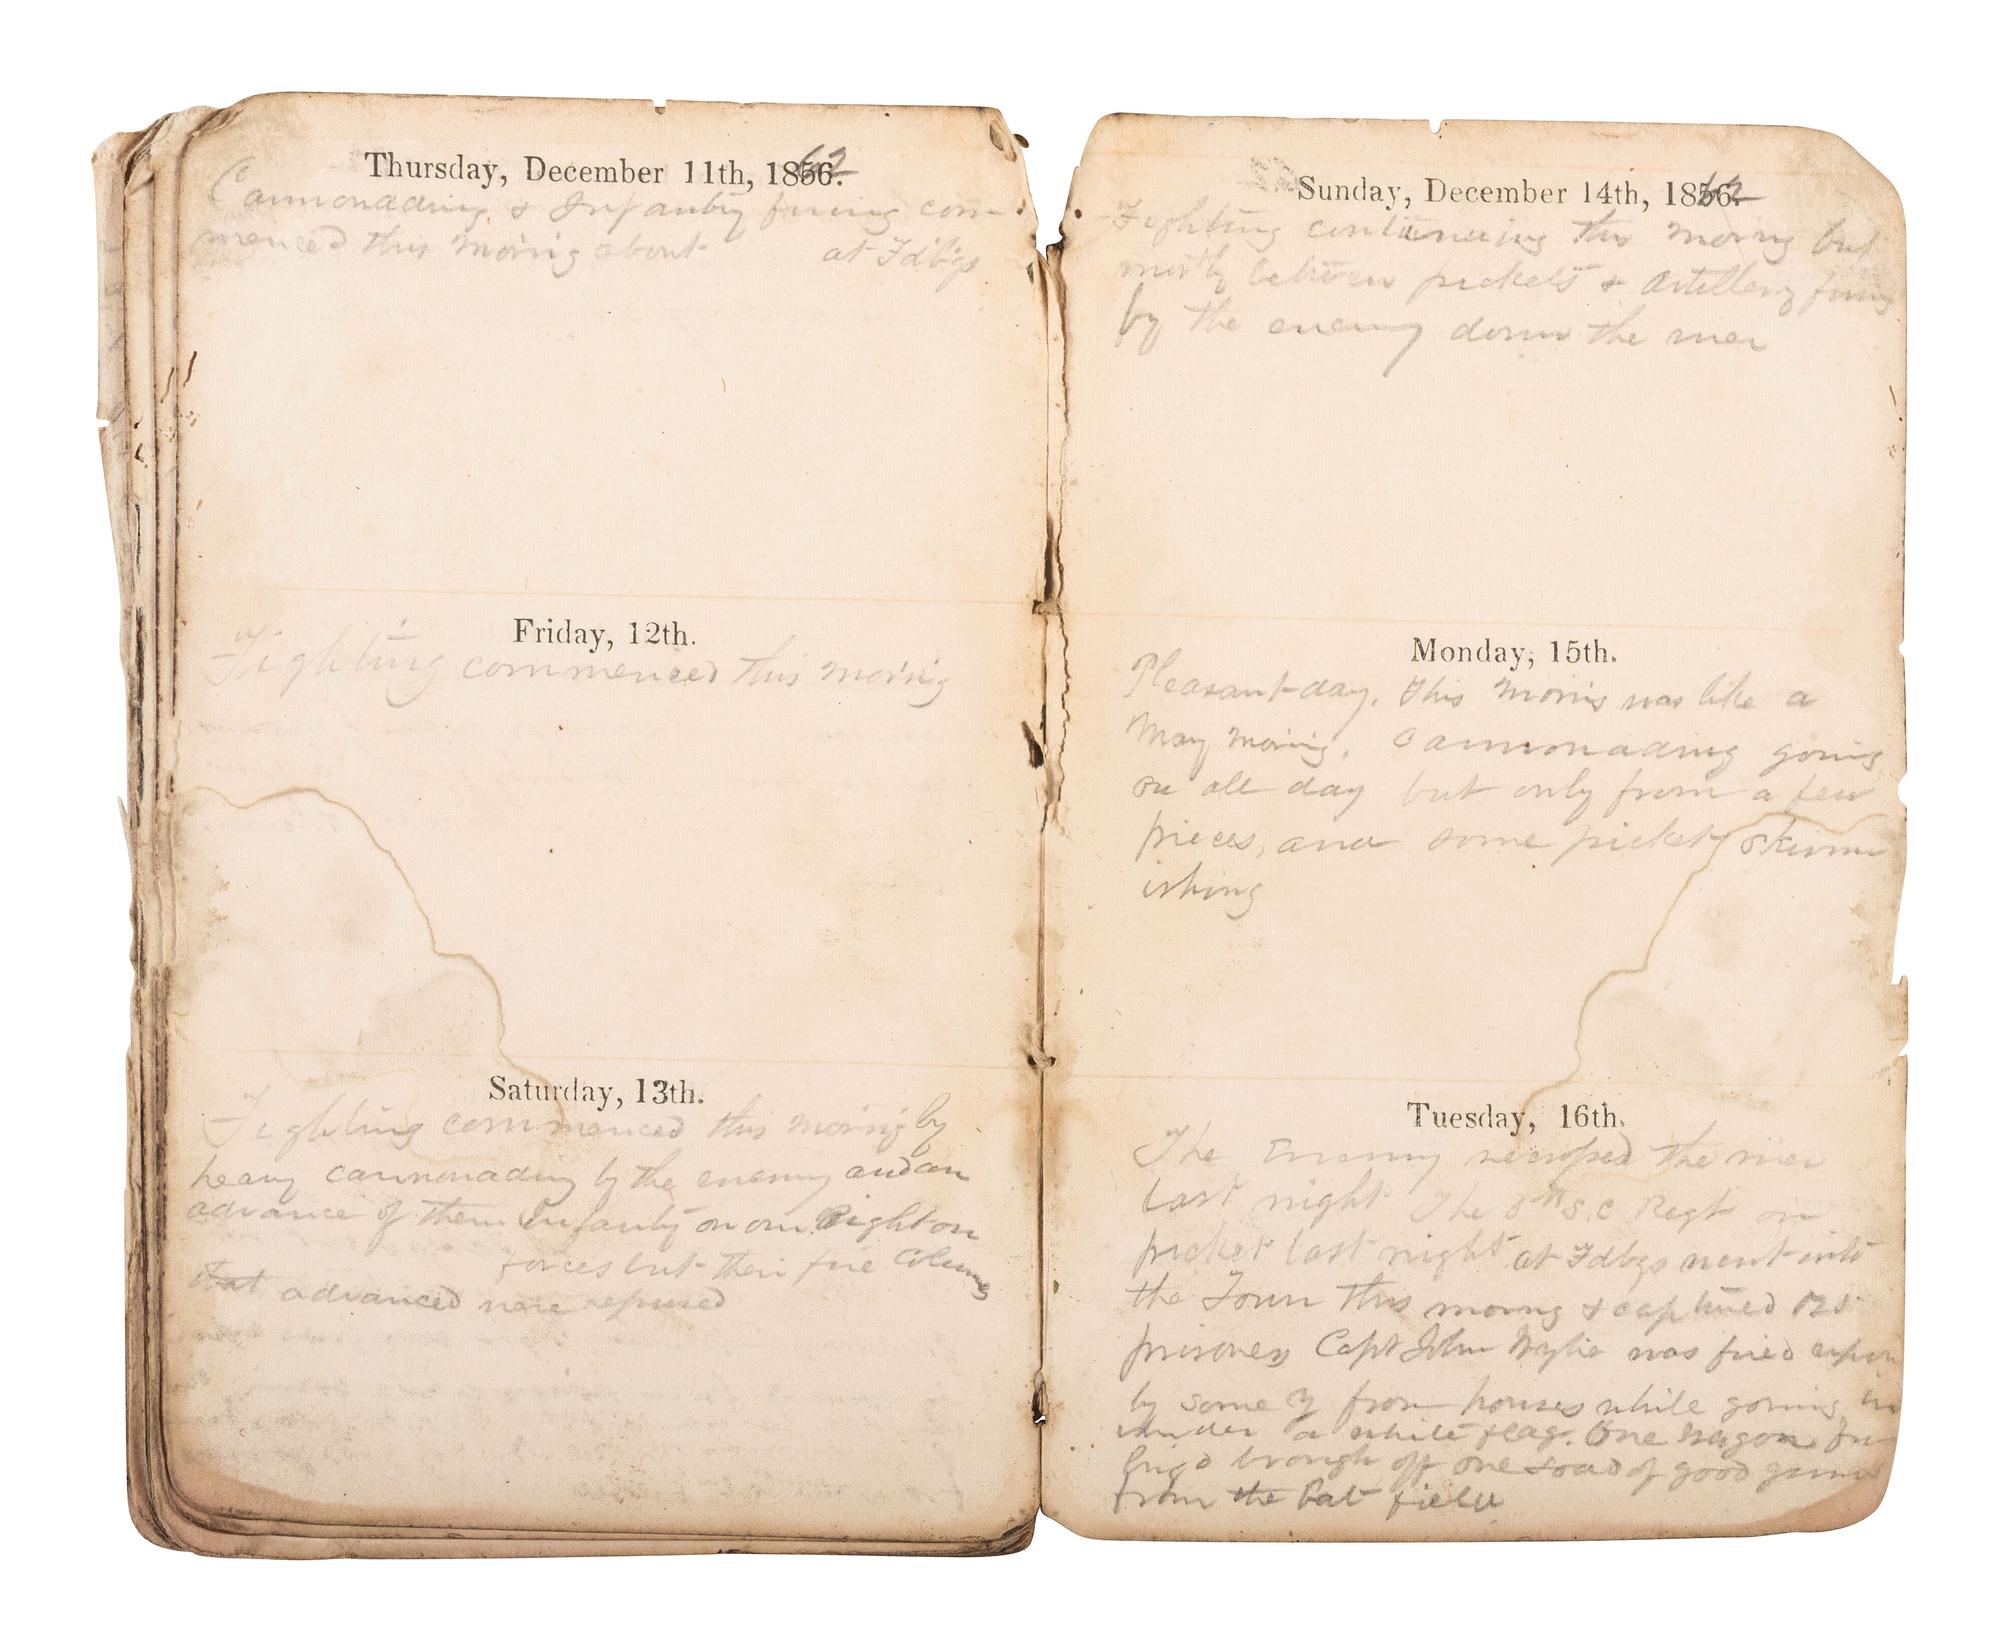 Thursday, December 11th, 1856. 62
Cannonading & Infantry firing com-
menced this morning about at Fdbgs
Friday, 12th.
Fighting commenced this morning
Saturday, 13th.
Fighting commenced this morning by
heavy cannonading by the enemy and an
advance of their Infantry on our Right on
forces but their fire Columns
that advanced were repused
Sunday, December 14th, 1856. 62
Fighting continueing this morng but
mostly between pickets & Artillery firing
by the enemy down the river
Monday, 15th.
Pleasant day. This morng was like a
May morng. Cannonading going
on all day but only from a few
pieces, and some picket skirm
ishing
Tuesday, 16th.
The Enemy recrossed the river
last night The S.C Regt on
picket last night at Fdbgs went into
the Town this morng & captured
prisoners Capt John Wylie was fired upon
by some Y from houses while going in
under a white flag. One wagon fm
brigd brough off one load of good guns
from the Bat field